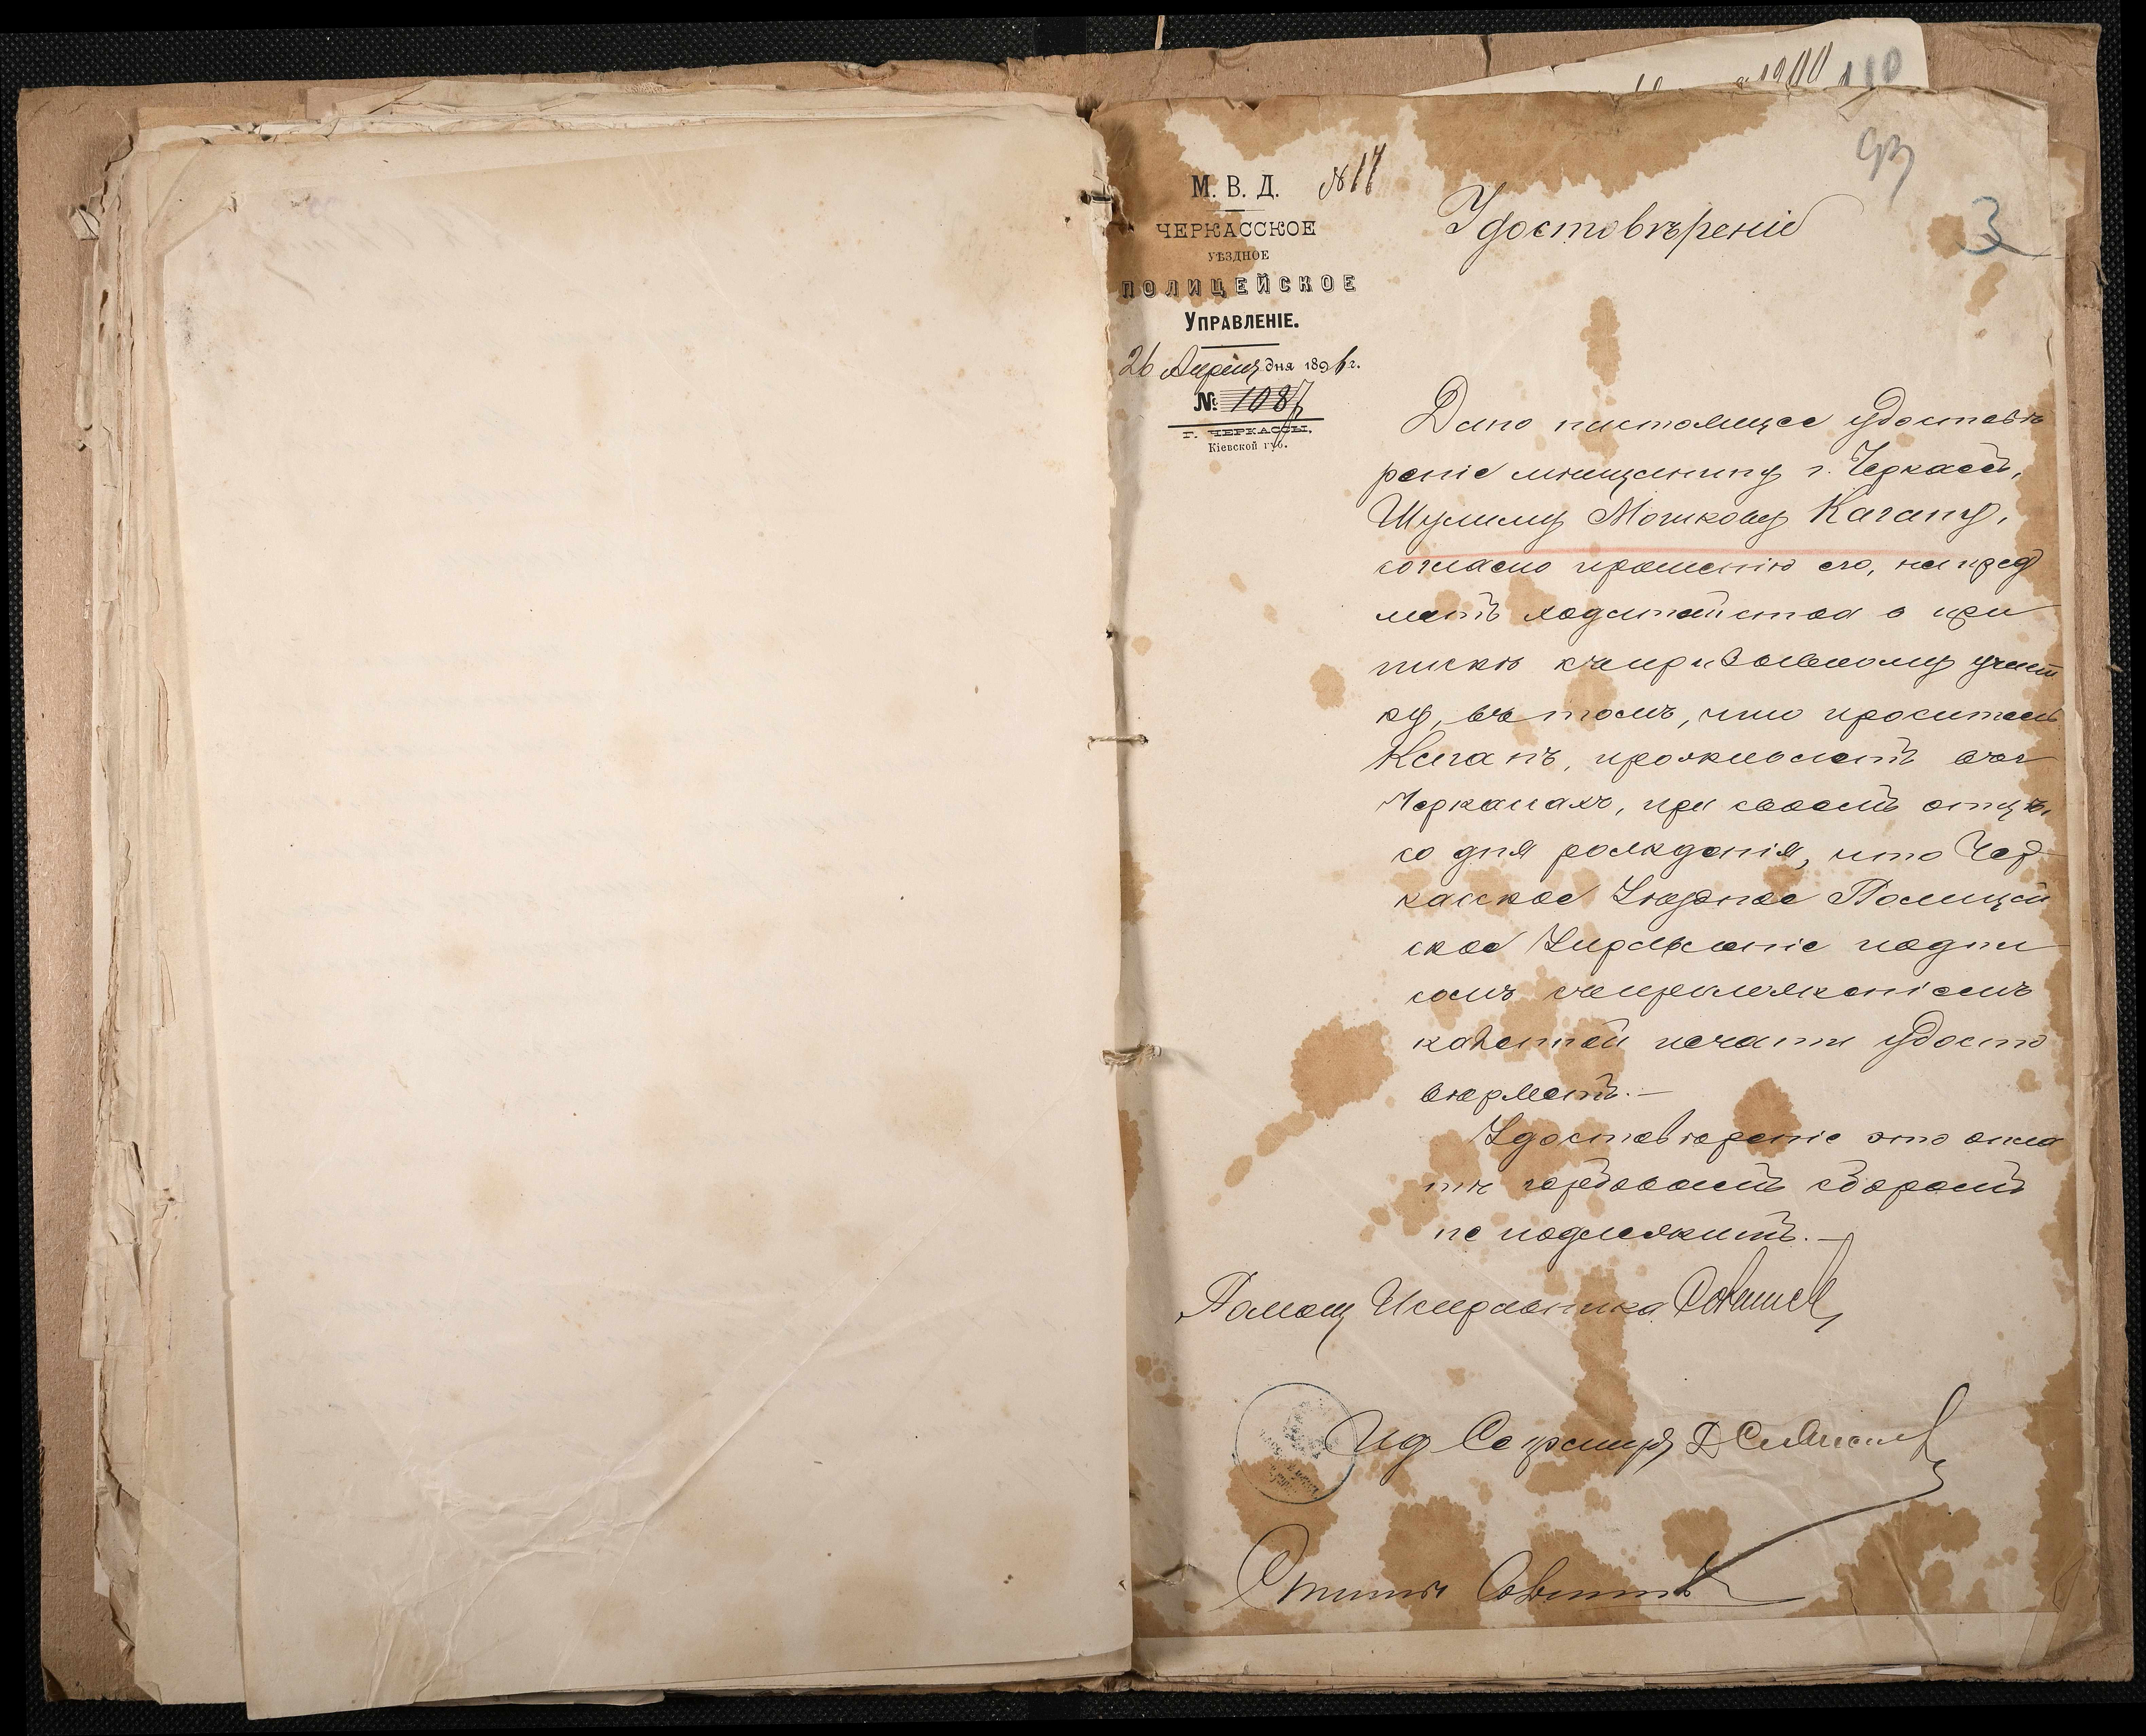 1900 110
93
3
М. В. Д. №17
ЧЕРКАССКОЕ
УѢЗДНОЕ
ПОЛИЦЕЙСКОЕ
УПРАВЛЕНІЕ.
26 Апреля дня 1896 г.
№ 1087
Г. ЧЕРКАССЫ,
Кіевской губ.
Удостовѣреніе
Дано настоящее удостовѣ
реніе мѣщанину г. Черкассъ,
Шулиму Мошкову Кагану,
согласно прошенію его, на пред
метъ ходатайства о при
пискѣ къ призывному участ
ку, въ томъ, что проситель
Каганъ, проживаетъ въ г
Черкасахъ, при своемъ отцѣ,
со дня рожденія, что Чер
касское Уѣздное Полицей
ское Управленіе подпи
сомъ съ приложеніемъ
казенной печати удосто
вѣряетъ.—
Удостовѣреніе это опла
тѣ гербовымъ сборомъ
не подлежитъ.—
Помощ Исправника
Ид Секретаря